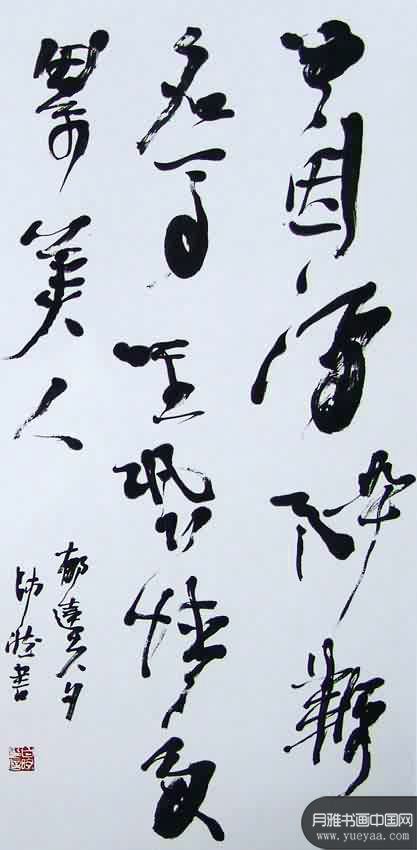 曾因酒醉鞭
名马生恐情多
累美人
郁達夫句
書
月雅书画中国网
www.yueyaa.com